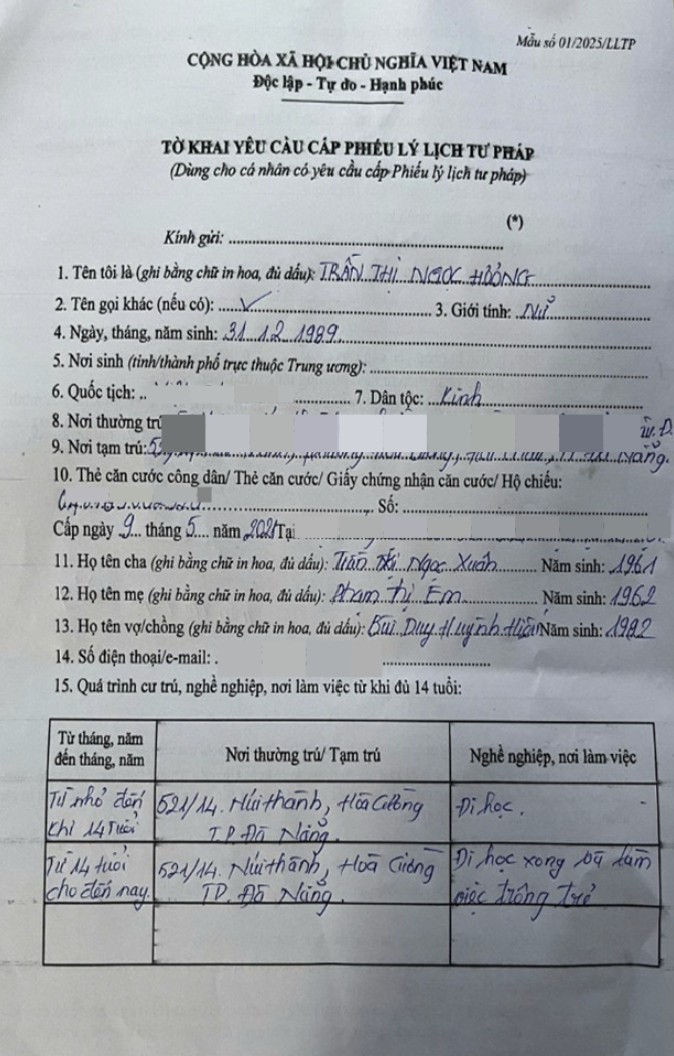 Mẫu số 01/2025/LLTP
CỘNG HÒA XÃ HỘI CHỦ NGHĨA VIỆT NAM
Độc lập - Tự do - Hạnh phúc
TỜ KHAI YÊU CẦU CẤP PHIẾU LÝ LỊCH TƯ PHÁP
(Dùng cho cá nhân có yêu cầu cấp Phiếu lý lịch tư pháp)
(*)
Kính gửi:
1. Tên tôi là (ghi bằng chữ in hoa, đủ dấu): TRẦN THỊ NGỌC
2. Tên gọi khác (nếu có): 3. Giới tính: Nữ
4. Ngày, tháng, năm sinh: 31.12.1989
5. Nơi sinh (tỉnh/thành phố trực thuộc Trung ương):
6. Quốc tịch: 7. Dân tộc: Kinh
8. Nơi thường trú
9. Nơi tạm trú:
10. Thẻ căn cước công dân/ Thẻ căn cước/ Giấy chứng nhận căn cước/ Hộ chiếu:
Số:
Cấp ngày 9 tháng 5 năm 2021 Tại
11. Họ tên cha (ghi bằng chữ in hoa, đủ dấu): Trần Ngọc Xuân Năm sinh: 1961
12. Họ tên mẹ (ghi bằng chữ in hoa, đủ dấu): Phạm Thị Em Năm sinh: 1962
13. Họ tên vợ/chồng (ghi bằng chữ in hoa, đủ dấu): Bùi Duy Huỳnh Năm sinh: 1982
14. Số điện thoại/e-mail:
15. Quá trình cư trú, nghề nghiệp, nơi làm việc từ khi đủ 14 tuổi:
Từ tháng, năm đến tháng, năm Nơi thường trú/ Tạm trú Nghề nghiệp, nơi làm việc
Từ nhỏ đến 521/14. Núi thành, Hoà Cường Đi học.
khi 14 tuổi TP. Đà Nẵng.
Từ 14 tuổi 521/14. Núi thành, Hoà Cường Đi học xong và làm
cho đến nay. TP. Đà Nẵng. việc trông trẻ